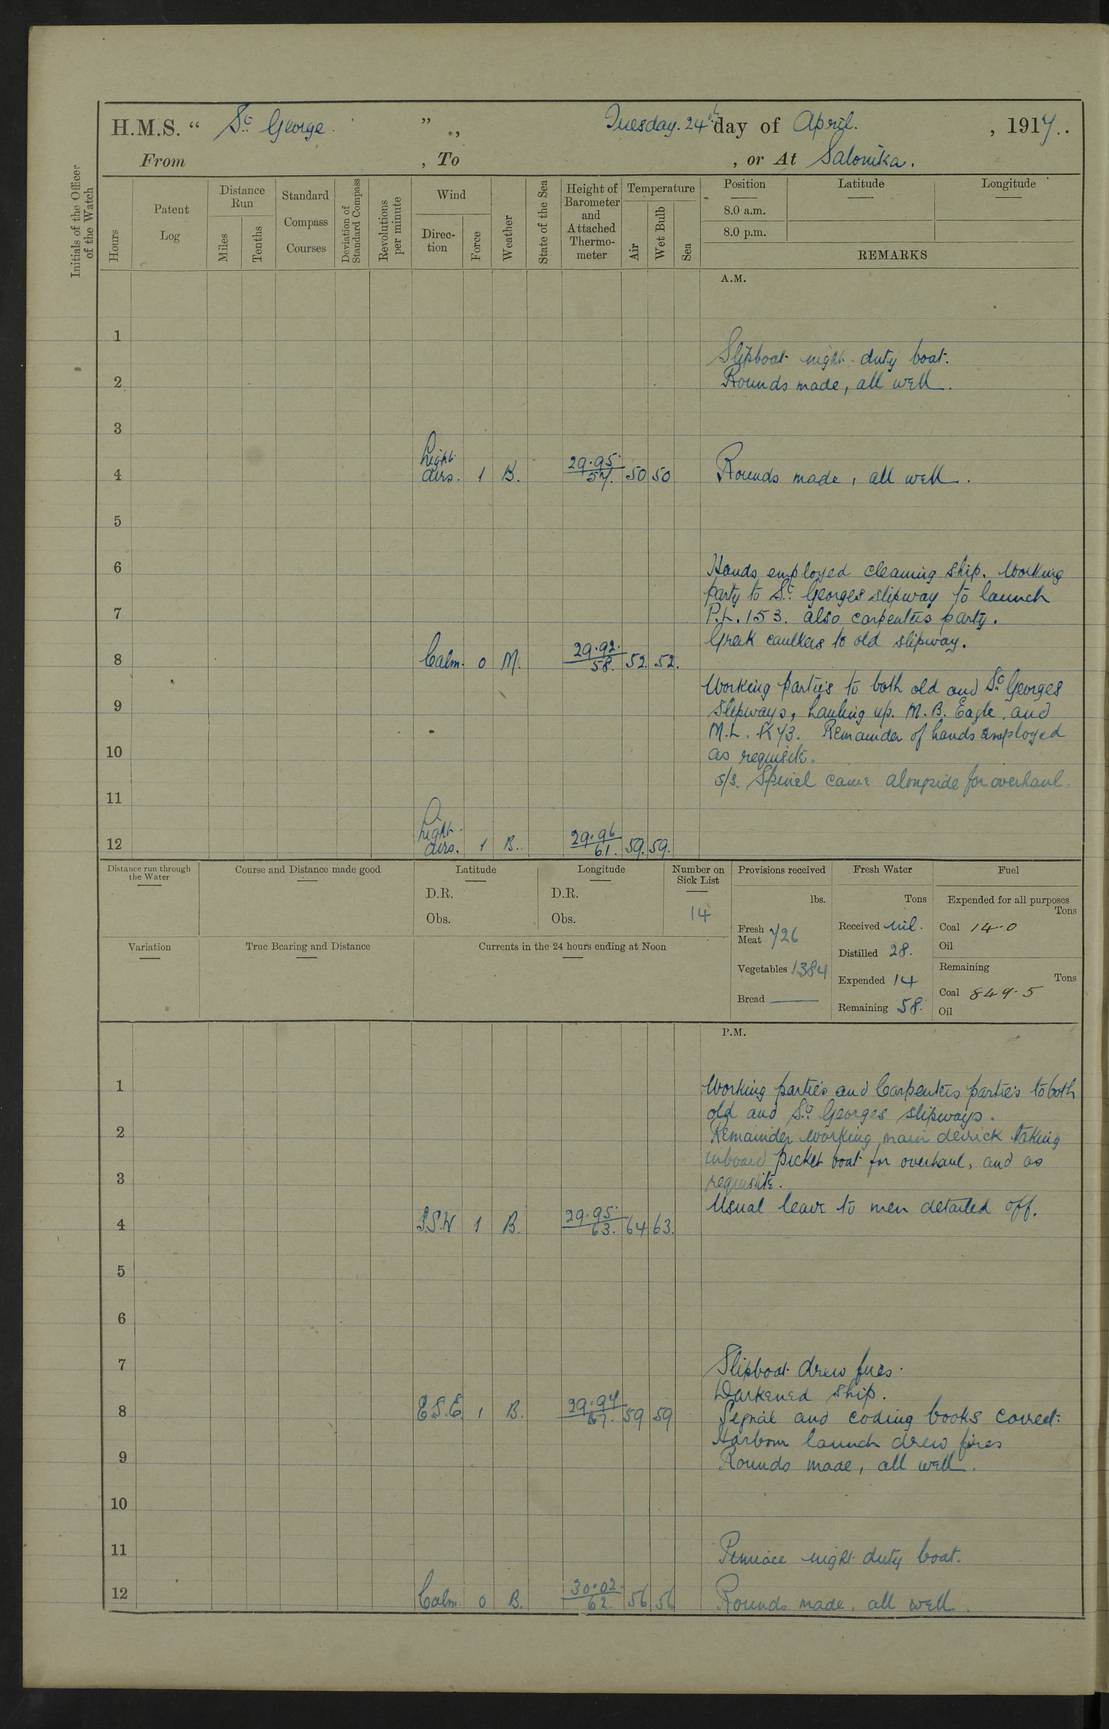 H.M.S. “ St George ” ., Tuesday. 24th day of April. , 1917..
From , To , or At Salonika.
Initials of the Officer of the Watch
Hours
Patent Log
Distance Run
Miles
Tenths
Standard Compass Courses
Deviation of Standard Compass
Revolutions per minute
Wind
Direction
Force
Weather
State of the Sea
Height of Barometer and Attached Thermometer
Temperature
Air
Wet Bulb
Sea
Position Latitude Longitude
8.0 a.m.
8.0 p.m.
REMARKS
A.M.
1
Slipboat night duty boat.
2 Rounds made, all well.
3
4 Light airs. 1 B. 29.95 57. 50 50 Rounds made, all well.
5
6 Hands employed cleaning ship. Working
party to St Georges slipway to launch
7 P.L. 153. also carpenters party.
Greek caulkers to old slipway.
8 Calm. 0 M. 29.92. 58. 52. 52.
Working parties to both old and St Georges
9 slipways, hauling up. M.B. Eagle. and
M.L. R43. Remainder of hands employed
10 as requisite.
s/s. Spinel came alongside for overhaul.
11
12 Light airs. 1 B. 29.96 61. 59. 59.
Distance run through the Water
Course and Distance made good
Latitude
D.R.
Obs.
Longitude
D.R.
Obs.
Number on Sick List
14
Provisions received
lbs.
Fresh Meat 726
Vegetables 1384
Bread ——
Fresh Water
Tons
Received nil.
Distilled 28.
Expended 14
Remaining 58.
Fuel
Expended for all purposes
Tons
Coal 14.0
Oil
Remaining
Tons
Coal 849.5
Oil
Variation
True Bearing and Distance
Currents in the 24 hours ending at Noon
P.M.
1 Working parties and Carpenters parties to both
old and St Georges slipways.
2 Remainder working main derrick taking
inboard picket boat for overhaul, and as
3 requisite.
Usual leave to men detailed off.
4 S.S.W 1 B. 29.95. 63. 64 63.
5
6
7 Slipboat drew fires.
Darkened ship.
8 E.S.E 1 B. 29.97 67. 59 59 Signal and coding books correct.
Harbour launch drew fires
9 Rounds made, all well.
10
11 Pinnace night duty boat.
12 Calm. 0 B. 30.02. 62. 56 56 Rounds made. all well.